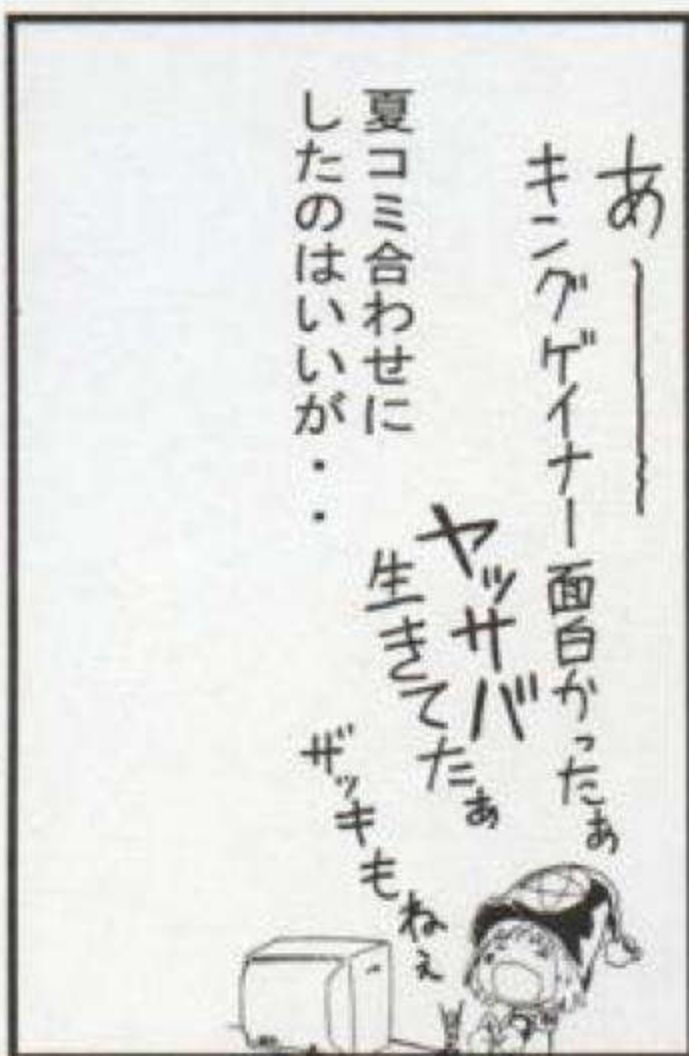 あー
キングゲイナー面白かったぁ
ヤッサバ
生きてたぁ
ザッキもねぇ
夏コミ合わせに
したのはいいが・・